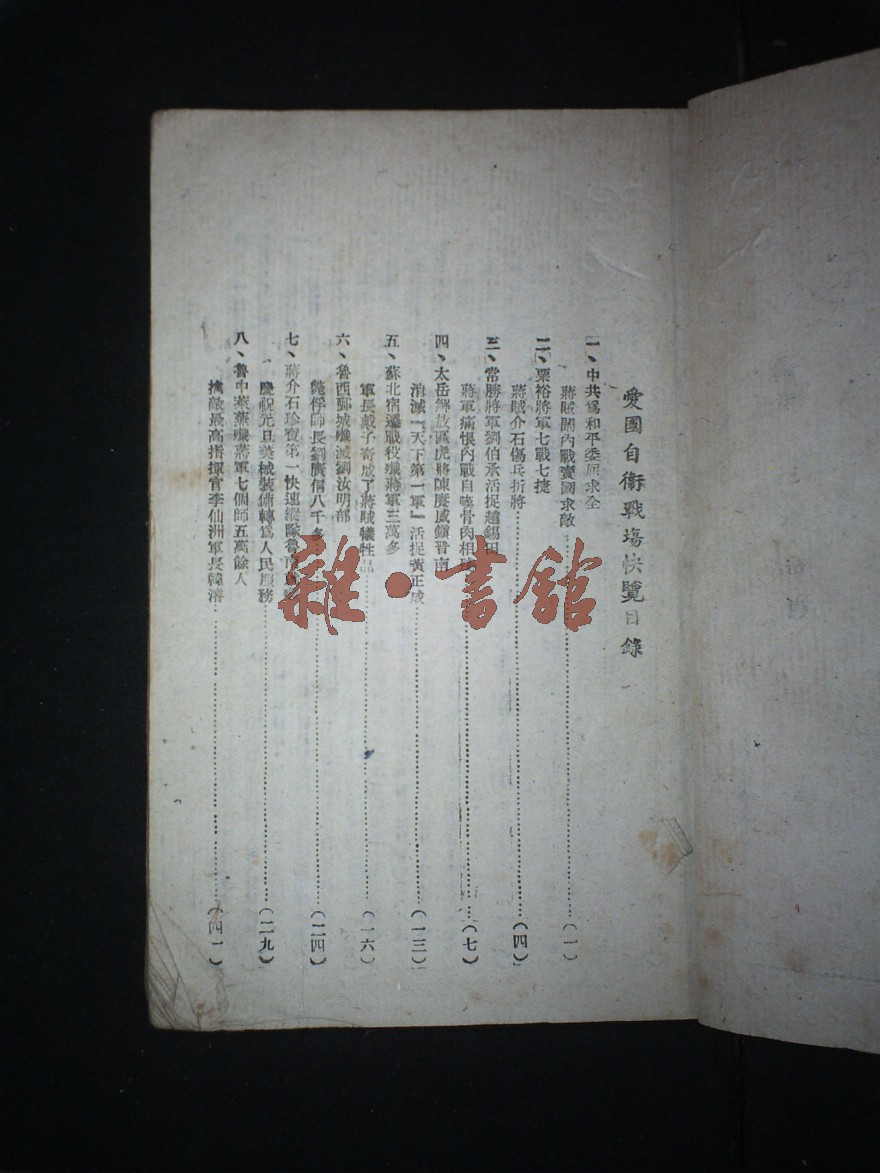 愛國自衛戰塲快覽目錄
一、中共爲和平委屈求全
蔣賊閙內戰賣國求敵……(一)
二、粟裕將軍七戰七捷
蔣賊介石傷兵折將……(四)
三、常勝將軍劉伯承活捉趙錫田
蔣軍痛恨內戰自噬骨肉相殘……(七)
四、太岳解放區虎將陳賡威鎮晋南
消滅『天下第一軍』活捉黃正成……(一三)
五、蘇北宿遷戰役殲蔣軍三萬多
軍長戴子奇成了蔣賊犧牲品……(一六)
六、魯西鄄城殲滅劉汝明部
斃俘師長劉廣信八千多……(二四)
七、蔣介石珍寶第一快速縱隊魯南
慶祝元旦美械裝備轉爲人民服務……(二九)
八、魯中萊蕪殲蔣軍七個師五萬餘人
擒敵最高指揮官李仙洲軍長韓濬……(四一)
雜·書館